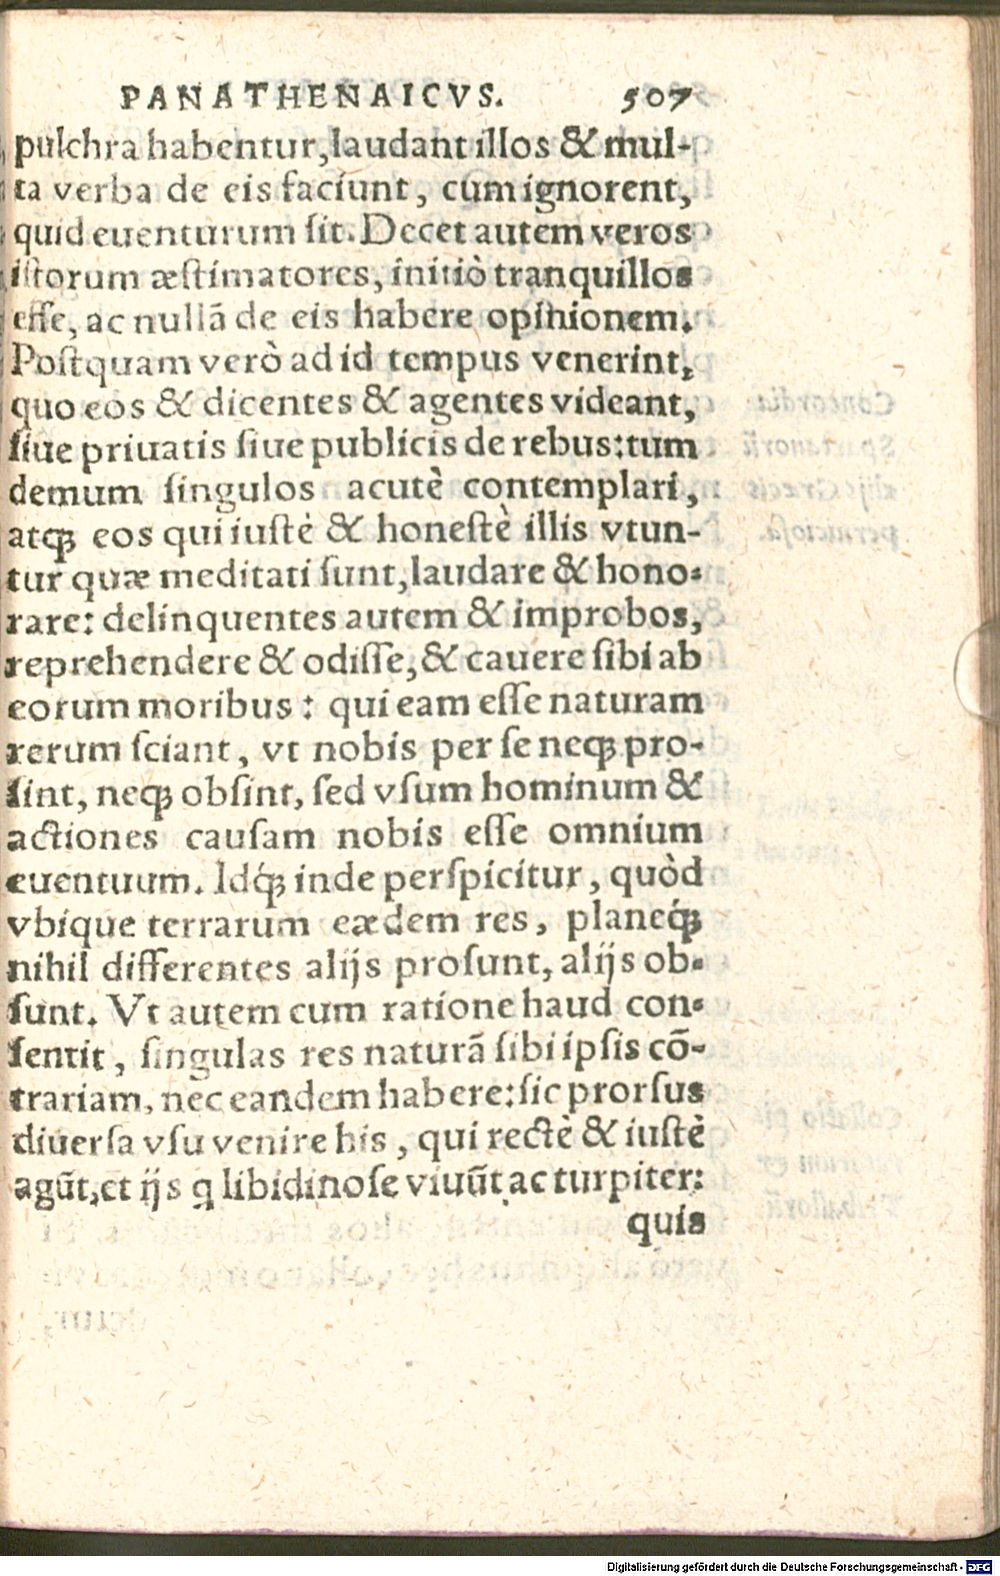 PANATHENAICVS. 507
pulchra habentur, laudant illos & mul-
ta verba de eis faciunt, cum ignorent,
quid euenturum sit. Decet autem veros
istorum æstimatores, initiò tranquillos
esse, ac nullā de eis habere opinionem.
Postquam verò ad id tempus venerint,
quo eos & dicentes & agentes videant,
siue priuatis siue publicis de rebus: tum
demum singulos acutè contemplari,
atq́ꝫ eos qui iustè & honestè illis vtun-
tur quæ meditati sunt, laudare & hono-
rare: delinquentes autem & improbos,
reprehendere & odisse, & cauere sibi ab
eorum moribus: qui eam esse naturam
rerum sciant, vt nobis per se neqꝫ pro-
sint, neqꝫ obsint, sed vsum hominum &
actiones causam nobis esse omnium
euentuum. Idq́ꝫ inde perspicitur, quòd
vbique terrarum eædem res, planeq́ꝫ
nihil differentes alijs prosunt, alijs ob-
sunt. Vt autem cum ratione haud con-
sentit, singulas res naturā sibi ipsis cō-
trariam, nec eandem habere: sic prorsus
diuersa vsu venire his, qui rectè & iustè
agūt, et ijs q libidinose viuūt ac turpiter:
quis
Digitalisierung gefördert durch die Deutsche Forschungsgemeinschaft - DFG